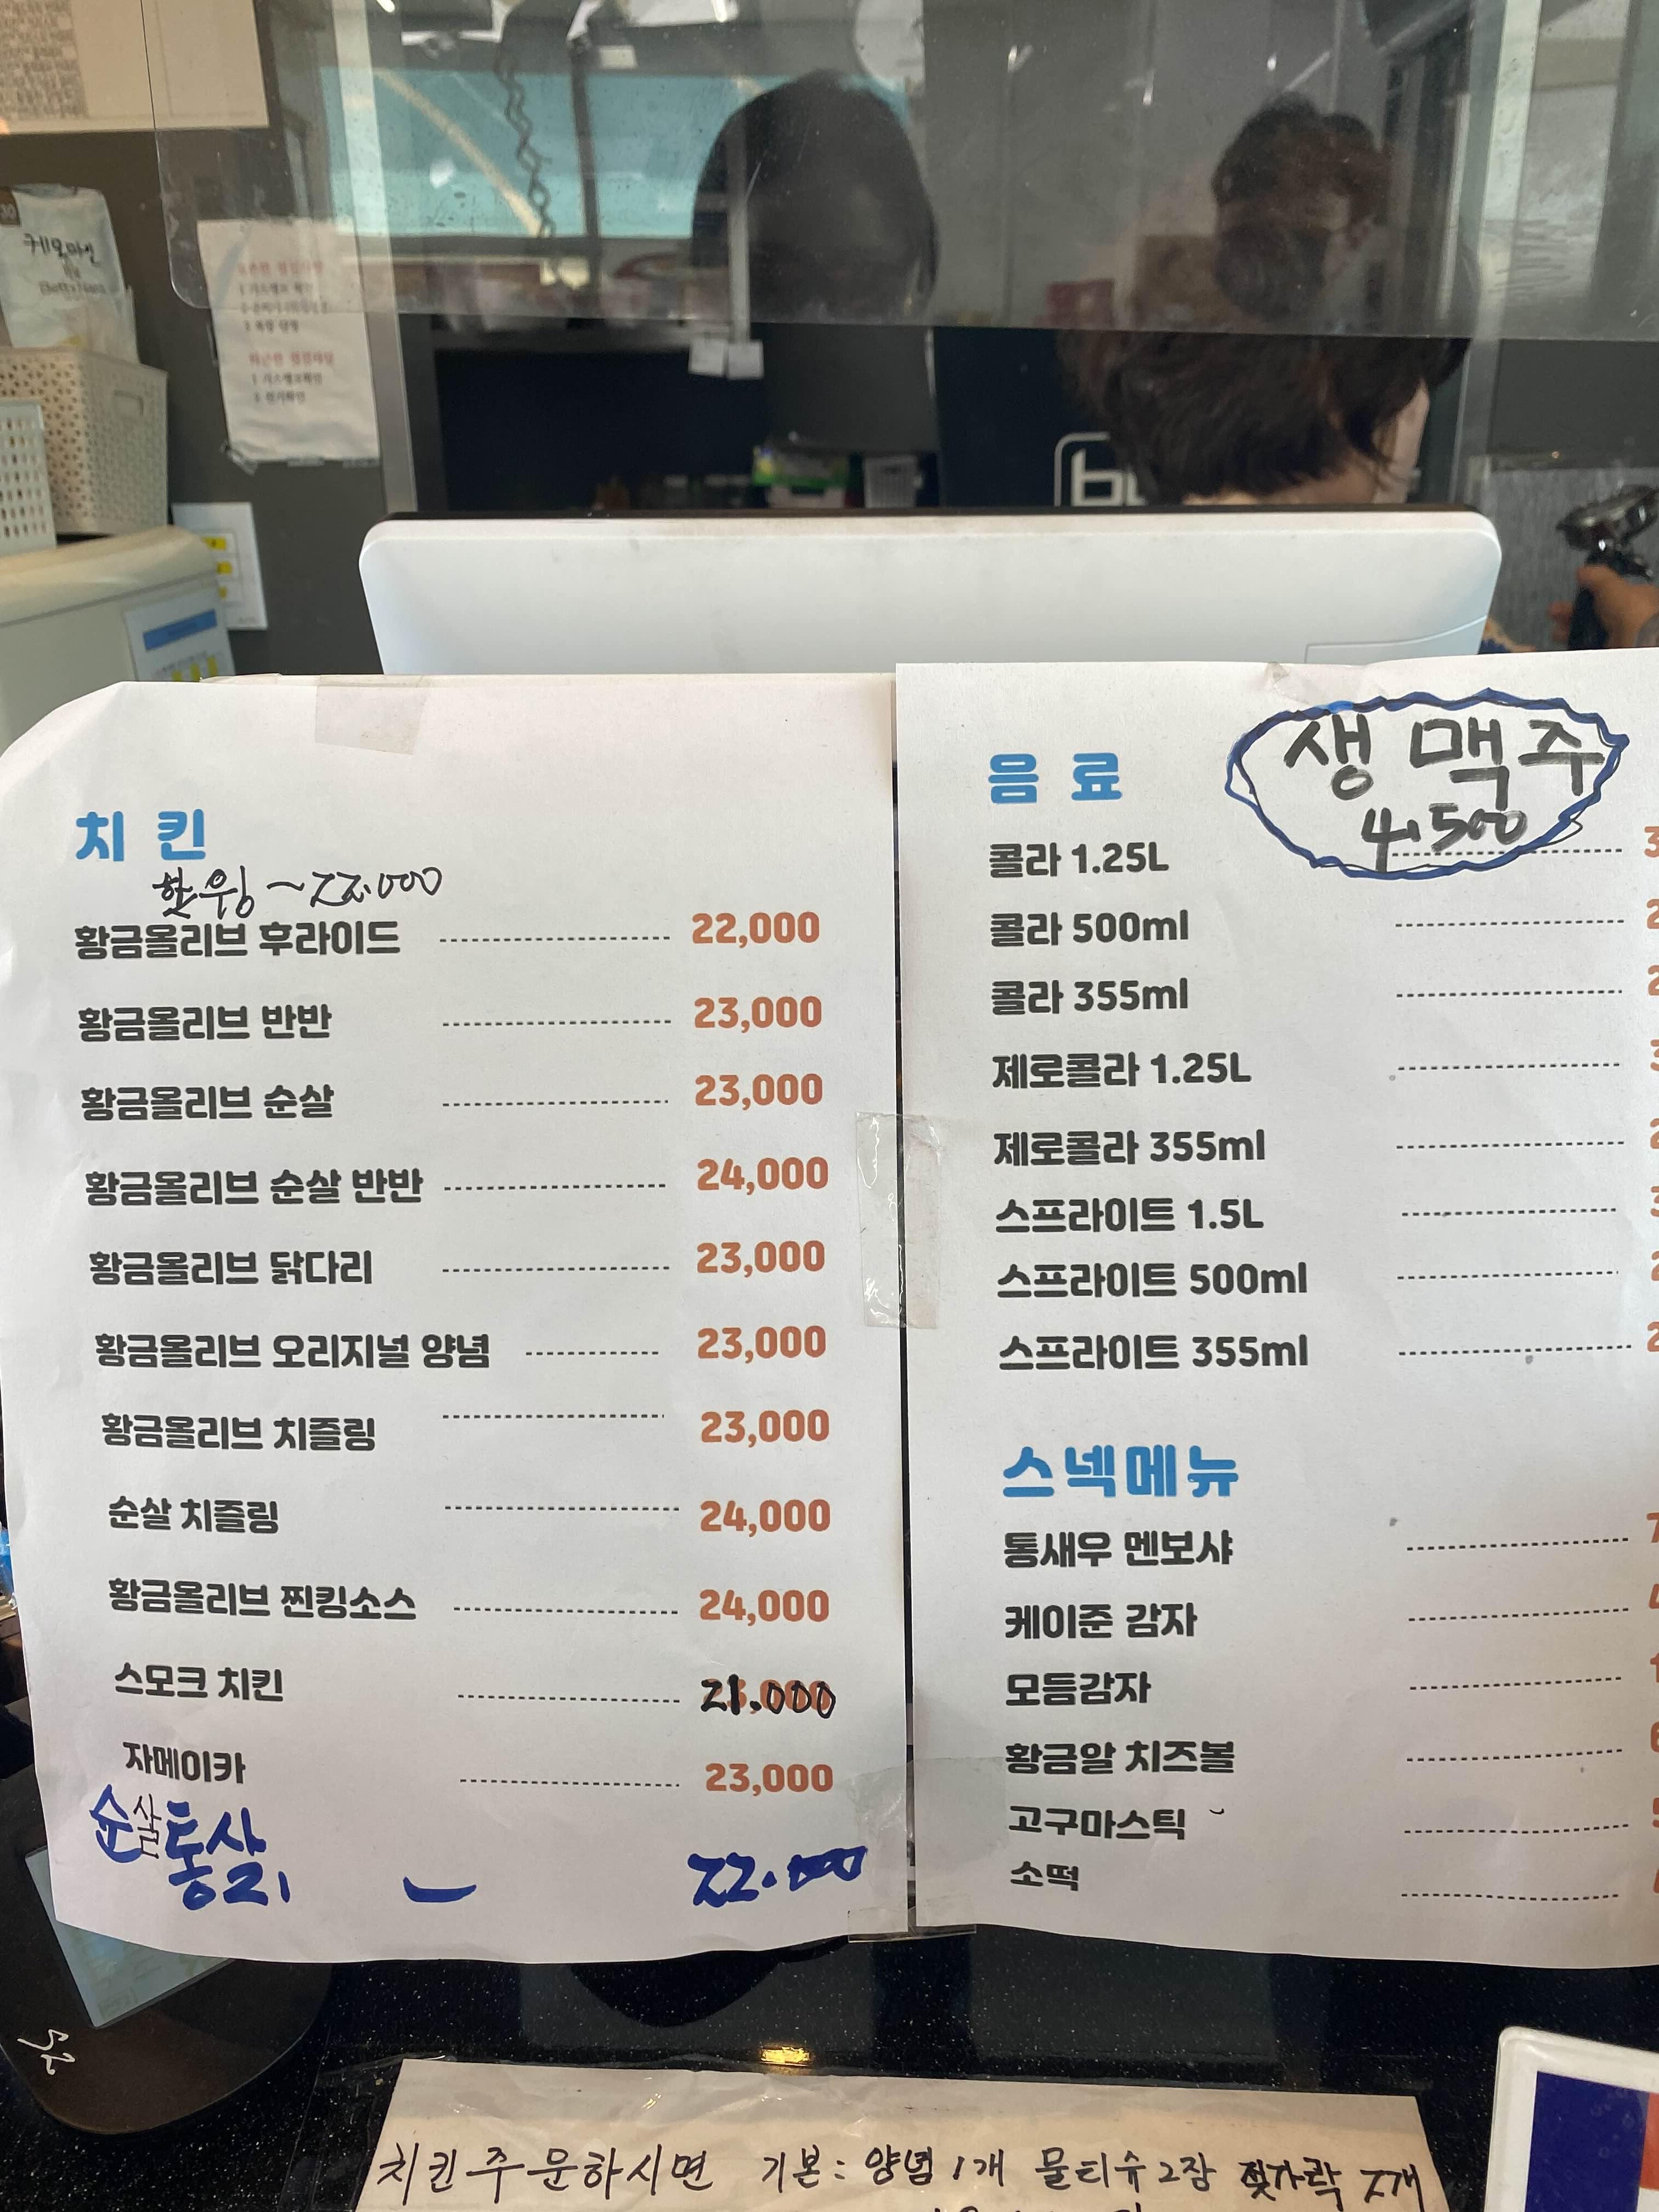 케이준
30
치 킨
핫윙 ~ 22.000
황금올리브 후라이드 22,000
황금올리브 반반 23,000
황금올리브 순살 23,000
황금올리브 순살 반반 24,000
황금올리브 닭다리 23,000
황금올리브 오리지널 양념 23,000
황금올리브 치즐링 23,000
순살 치즐링 24,000
황금올리브 찐킹소스 24,000
스모크 치킨 21.000
자메이카 23,000
순살 통살 22.000
음 료
생맥주
4.500
콜라 1.25L 3
콜라 500ml 2
콜라 355ml 2
제로콜라 1.25L 3
제로콜라 355ml 2
스프라이트 1.5L 3
스프라이트 500ml 2
스프라이트 355ml 2
스넥메뉴
통새우 멘보샤 7
케이준 감자 4
모듬감자 1
황금알 치즈볼 6
고구마스틱 5
소떡
치킨주문하시면 기본: 양념1개 물티슈2장 젓가락 2개